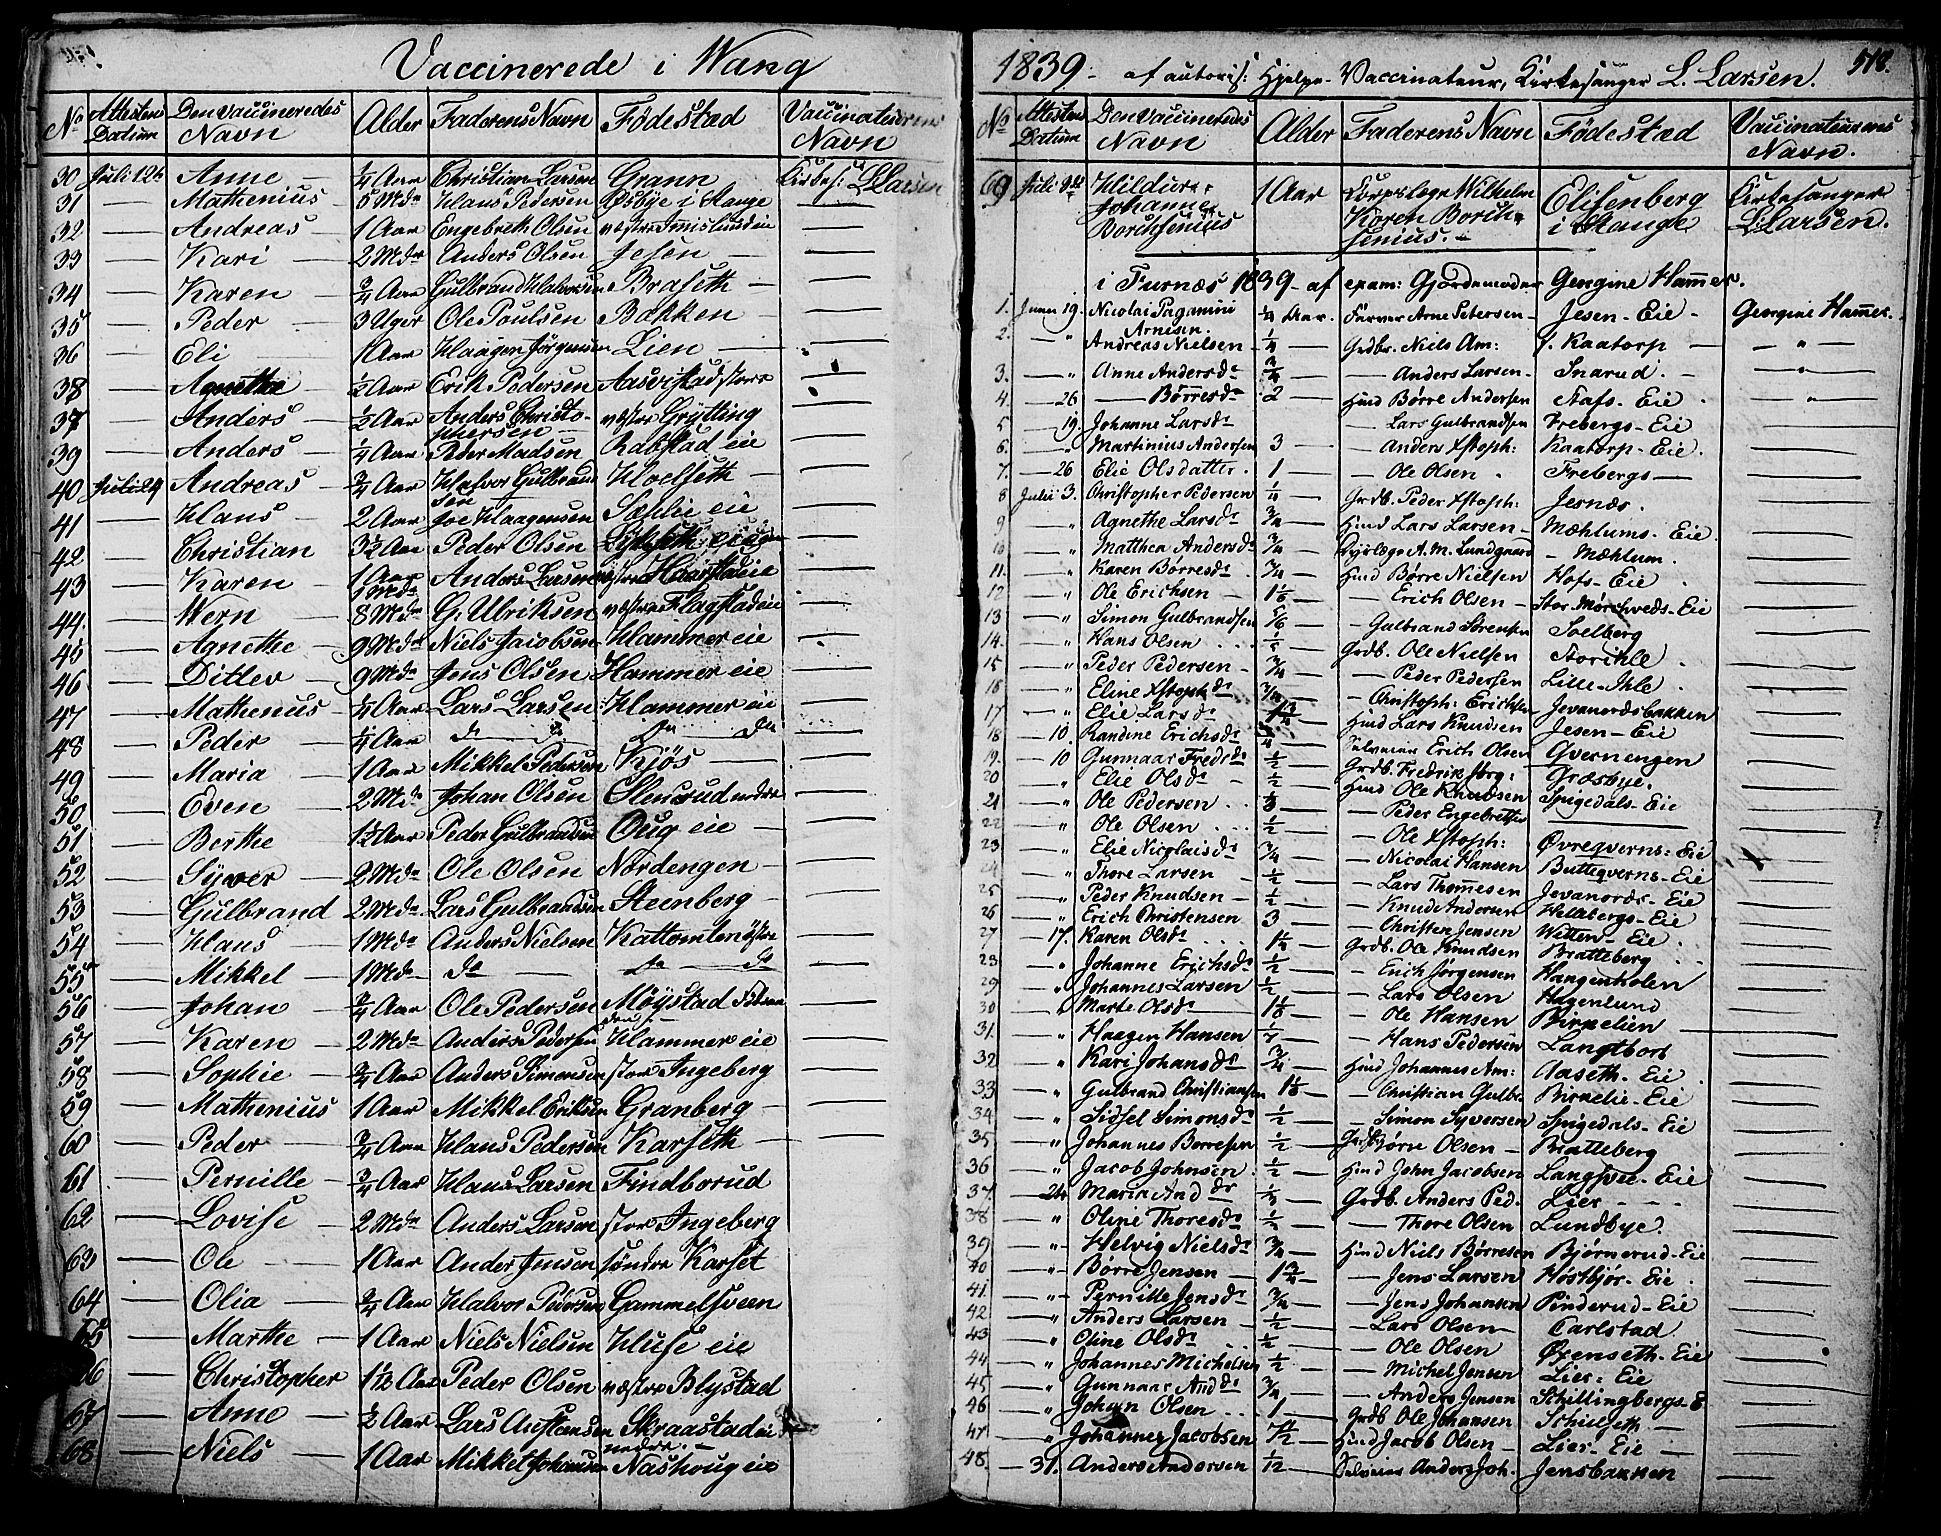 Vaccinerede i Wang
No Attestens Datum Den Vaccineredes Navn Alder Faderens Navn Fødestad Vaccinateurens Navn
30 Juli 12te Anne — 1/4 Aar Christian Larsen Grann Kirkes: L Larsen
31 — Mathenius — 5 Mdr Hans Pedersen Øsbye i Stange —
32 — Andreas — 1 Aar Engebreth Olsen vestre —
33 — Kari — 2 Mdr Anders Olsen Jesen —
34 — Karen — 3/4 Aar Gulbrand Halvorsen Braseth —
35 — Peder — 3 Uger Ole Poulsen Bakken —
36 — Eli — 1 Aar Haagen Jörgensen Lien —
38 — Agnethe 1/2 Aar Erik Pedersen Aasvistad store —
37 — Anders — 1/2 Aar Anders Christophersen vestre Grytting —
39 — Anders — 1/4 Aar Peder Madsen Rabstad eie —
40 Juli 29 Andreas — 3/4 Aar Halvor Gulbrandsen Hoelseth —
41 — Hans — 2 Aar Joe Haagensen Sæhlie eie —
42 — Christian 3 1/2 Aar Peder Olsen —
43 — Karen — 1 Aar Anders Larsen Haarstad eie —
44 — Wern — 8 Mdr G. Ulriksen vestre Flagstad eie —
45 — Agnethe — 9 Mdr Niels Jacobsen Hammer eie —
46 — Ditlev — 9 Mdr Jens Olsen Hammer eie —
47 — Mathenius — 1/4 Aar Lars Larsen Hammer eie —
48 — Peder — 1/4 Aar do do do do —
49 — Maria — 1 Aar Mikkel Pedersen Kjös —
50 — Even — 2 Mdr Johan Olsen Olensrud nedre —
51 — Berthe 1 1/2 Aar Peder Gulbrandsen Oug eie —
52 — Syver — 2 Mdr Ole Olsen Nordengen —
53 — Gulbrand 2 Mdr Lars Gulbrandsen Steenberg —
54 — Hans — 1 Md Anders Nielsen Kattomten östre —
55 — Mikkel — 1 Md do — do do —
56 — Johan — 3/4 Aar Ole Pedersen Möystad —
57 — Karen — 2 Mdr Anders Pedersen Hammer eie —
58 — Sophie — 3/4 Aar Anders Simensen store Ingeberg —
59 — Mathenius 1 Aar Mikkel Eriksen Granberg —
60 — Peder — 3/4 Aar Hans Pedersen Karseth —
61 — Pernille — 3/4 Aar Hans Larsen Findborud
62 — Lovise — 2 Mdr Anders Larsen store Ingeberg
63 — Ole — 1 Aar Ander Jensen søndre Karset
64 — Olia — 3/4 Aar Halvor Pedersen Gammelsveen
65 — Marthe — 1 Aar Niels Nielsen Huse eie
66 — Christopher 1 1/2 Aar Peder Olsen vestre Blystad
67 — Anne — 1/2 Aar Lars Skraastad eie
68 — Niels — 1 Aar Mikkel Johansen nedre Nashoug eie
1839 — af autoris: Hjelpe-Vaccinateur, Kirkesanger L. Larsen. 518.
No Attestens Datum Den Vaccineredes Navn Alder Faderens Navn Fødestad Vaccinateurens Navn.
69 Juli Hildur Johanne Borchsenius 1 Aar Corpslæge Wilhelm Koren Borchsenius. — Elisenberg i Stange Kirkesanger L Larsen.
i Furnæs 1839 — af exam: Gjordemoder Gengine Hammer.
1. Juni 19. Nicolai Paganini Arnesen. 1/4 Aar. Farver Arne Petersen — Jesen — Eie — Gengine Hammer.
2. — " Andreas Nielsen — 1/4 — Grdbr. Niels Am: Kaatorp — — " —
3. — " Anne Andersdr 3/4 — — Anders Larsen — Snarud. — "
4. — 26 — Børresdr 2 — Huusd Børre Andersen Stafs — Eie "
5 — 19. Johanne Larsdr — Lars Gulbrandsen Frebergs — Eie —
6. — " Martinius Andersen 3 — — Anders Xstoph: Kaatorp — Eie. —
7. — 26 Elie Olsdatter. 1 — — Ole Olsen Frebergs — —
8 Julii 3. Christopher Pedersen 1/4 — Grdb. Peder Xstoph: Jesnæs. —
9 — " Agnethe Larsdr 3/4 — Huusd Lars Larsen — Mæhlums — Eie —
10 — " Matthea Andersdr 3/4 — Dyrlæge A. M. Lundgaard — Mæhlum. —
11. — " Karen Børresdr 3/4 — Huusd Børre Nielsen Hofs — Eie —
12 — " Ole Erichsen — 1 1/6 — — Erich Olsen — Stor-Mørchveds — Eie —
13 — " Simon Gulbrandsen 5/6 — — Gulbrand Sørensen Soelberg —
14. — " Hans Olsen — Grdb. Ole Nielsen Storihle —
15 — " Peder Pedersen — 3/4 — — Peder Pedersen Lille-Ihle —
16 — " Eline Xstophdr 3/4 — — Christoph: Erichsen Jevanordsbakken —
17 — " Elie Larsdr 1 3/4 — Huusd Lars Knudsen Jesen — Eie —
18 — 10. Randine Erichsdr 3/4 — Selveier Erich Olsen Qvernengen —
19. — 10 Gunnaar Fredrdr 1/2 — Grdb. Fredrik Jörg: Græsbye. —
20 — " Elie Olsdr — 1/2 — Huusd Ole Knudsen Spigedals — Eie —
21 — " Ole Pedersen — Peder Engebretsen —
22 — " Ole Olsen 1/2 — — Ole Xstoph: Øvreqverns — Eie —
23 — " Elie Nicolaisdr 3/4 — — Nicolai Hansen Butteqverns — Eie —
24 — " Thore Larsen — 1/2 — — Lars Thomesen Jevanords — Eie —
25 — " Peder Knudsen — 1/2 — — Knud Andersen Helsbergs — Eie —
26 — " Erich Christensen 3 — — Christen Jensen Witten — Eie —
27 — 17. Karen Olsdr — Grdb. Ole Knudsen Bratteberg —
28 — " Johanne Erichsdr 1/2 — — Erich Jørgensen Haugenholen —
29 — " Johannes Larsen 1/2 — — Lars Olsen Hagenlund —
30 — " Marte Olsdr 1 1/6 — — Ole Hansen Birkelien —
31. — " Haagen Hansen — Hans Pedersen Langtbort —
32. — " Kari Johansdr 3/4 — Huusd Johannes Am: Aaseth — Eie —
33 — " Gulbrand Christiansen 1 1/6 — — Christian Gulbr Birkelie — Eie —
34 — " Sidsel Simonsdr 1/2 — — Simon Syversen Spigedals — Eie —
35 — " Johannes Borresen 1/2 — Grdb Børre Olsen — Bratteberg —
36 — " Jacob Johnsen 1/2 — Huusd John Jacobsen Langsvee — Eie —
37. — 24 Maria Anddr 1/4 — Grdb. Anders Ped. Lier — —
38 — " Oline Thoresdr — Thore Olsen Lundbye. —
39 — " Helvig Nielsdr 3/4 — Huusd Niels Børresen Bjørnerud — Eie —
40 — " Børre Jensen — 1 3/4 — — Jens Larsen Høstbjør — Eie —
41. — " Pernille Jensdr 3/4 — — Jens Johansen Pinderud — Eie —
42 — " Anders Larsen — 1/2 — — Lars Olsen — Carlstad —
43 — " Oline Olsdr 1/2 — — Ole Olsen Øxenseth — Eie —
44 — " Johannes Michelsen 1/2 — — Michel Jensen Lier — Eie —
45 — " Gunnaar Anddr 3/4 — — Anders Jensen Schillingbergs — E —
46 — " Johan Olsen 1 — Grdb Ole Johansen Schielseth —
47 — " Johannes Jacobsen Huusd Jacob Olsen — Lier — Eie —
48. — 31. Anders Andersen 1/12 — Selveier Anders Joh. Jensbakken —